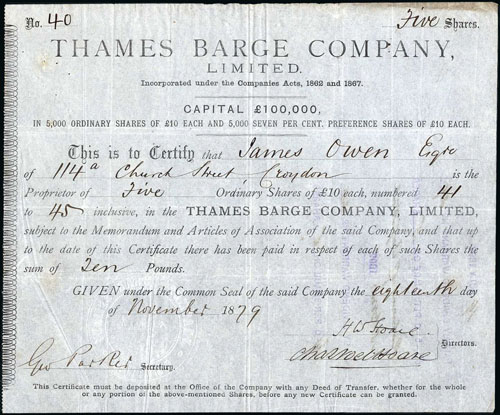 No. 40 Five Shares.
THAMES BARGE COMPANY,
LIMITED.
Incorporated under the Companies Acts, 1862 and 1867.
CAPITAL £100,000,
IN 5,000 ORDINARY SHARES OF £10 EACH AND 5,000 SEVEN PER CENT. PREFERENCE SHARES OF £10 EACH.
This is to Certify that James Owen Esqre
of 114a Church Street Croydon is the
Proprietor of Five Ordinary Shares of £10 each, numbered 41
to 45 inclusive, in the THAMES BARGE COMPANY, LIMITED,
subject to the Memorandum and Articles of Association of the said Company, and that up
to the date of this Certificate there has been paid in respect of each of such Shares the
sum of Ten Pounds.
GIVEN under the Common Seal of the said Company the eighteenth day
of November 1879
Hoare
Directors.
Geo Parker Secretary.
Hoare
This Certificate must be deposited at the Office of the Company with any Deed of Transfer, whether for the whole
or any portion of the above-mentioned Shares, before any new Certificate can be granted.